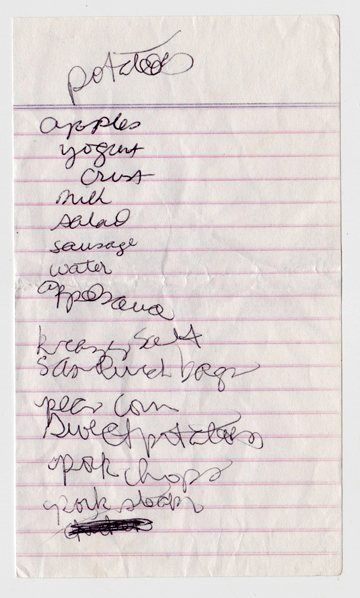 potatoes
apples
yogurt
Crust
milk
salad
sausage
water
krazy Salt
Sandwich bags
peas corn
Sweet potatoes
pork chops
pork